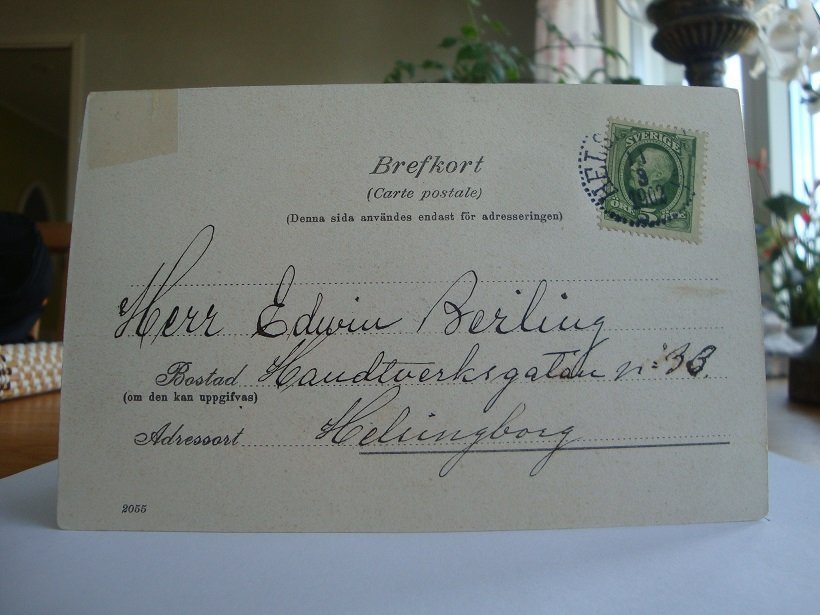 Brefkort
(Carte postale)
(Denna sida användes endast för adresseringen)
SVERIGE
HELS
1902
5
Herr Edwin Berling
Bostad Handtverksgatan No: 33.
(om den kan uppgifvas)
Adressort Helsingborg
2055